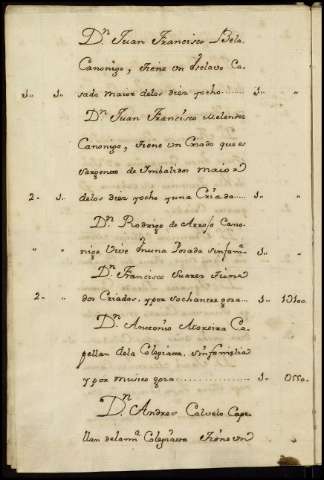 Dn. Juan Francisco
Canonigo, tiene un Esclavo Ca-
1.. 1.. sado maior delos diez yocho..... 1.. "
Dn. Juan Francisco Melendez
Canonigo, tiene un Criado que es
Sargento de Imbalidos maior
2.. 1.. delos diez yocho yuna Criada.... 1.. "
Dn. Rodrigo de Cano-
" " nigo Vive en una Posada sinfama. 1.. "
Dn. Francisco Suarez tiene
2.. " dos Criados, ypor sochantre goza.. 1..
Dn. Antonio Moreira Ca-
pellan dela Colegiata, sinfamilia
y por musico goza................ 1.. 0550.
Dn. Andres Calvelo Cape-
llan delama. Colegiata tiene un "